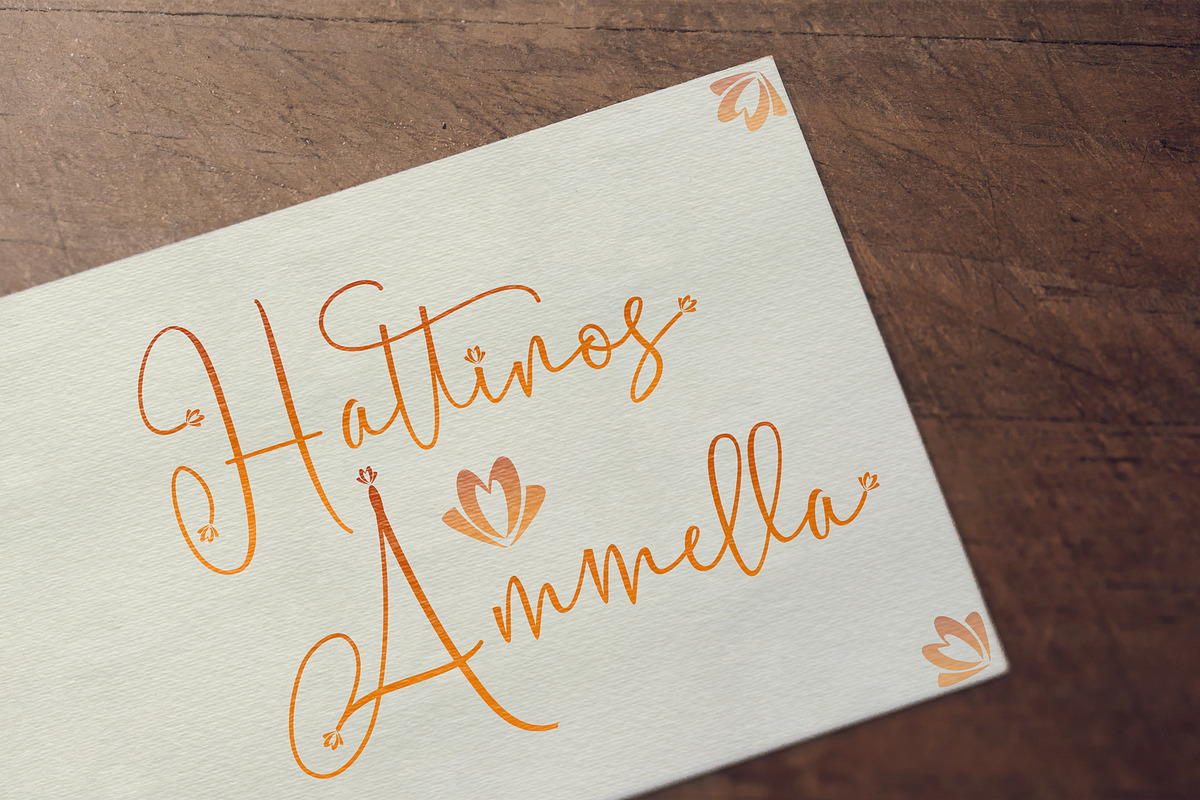 Hattinos
Ammella